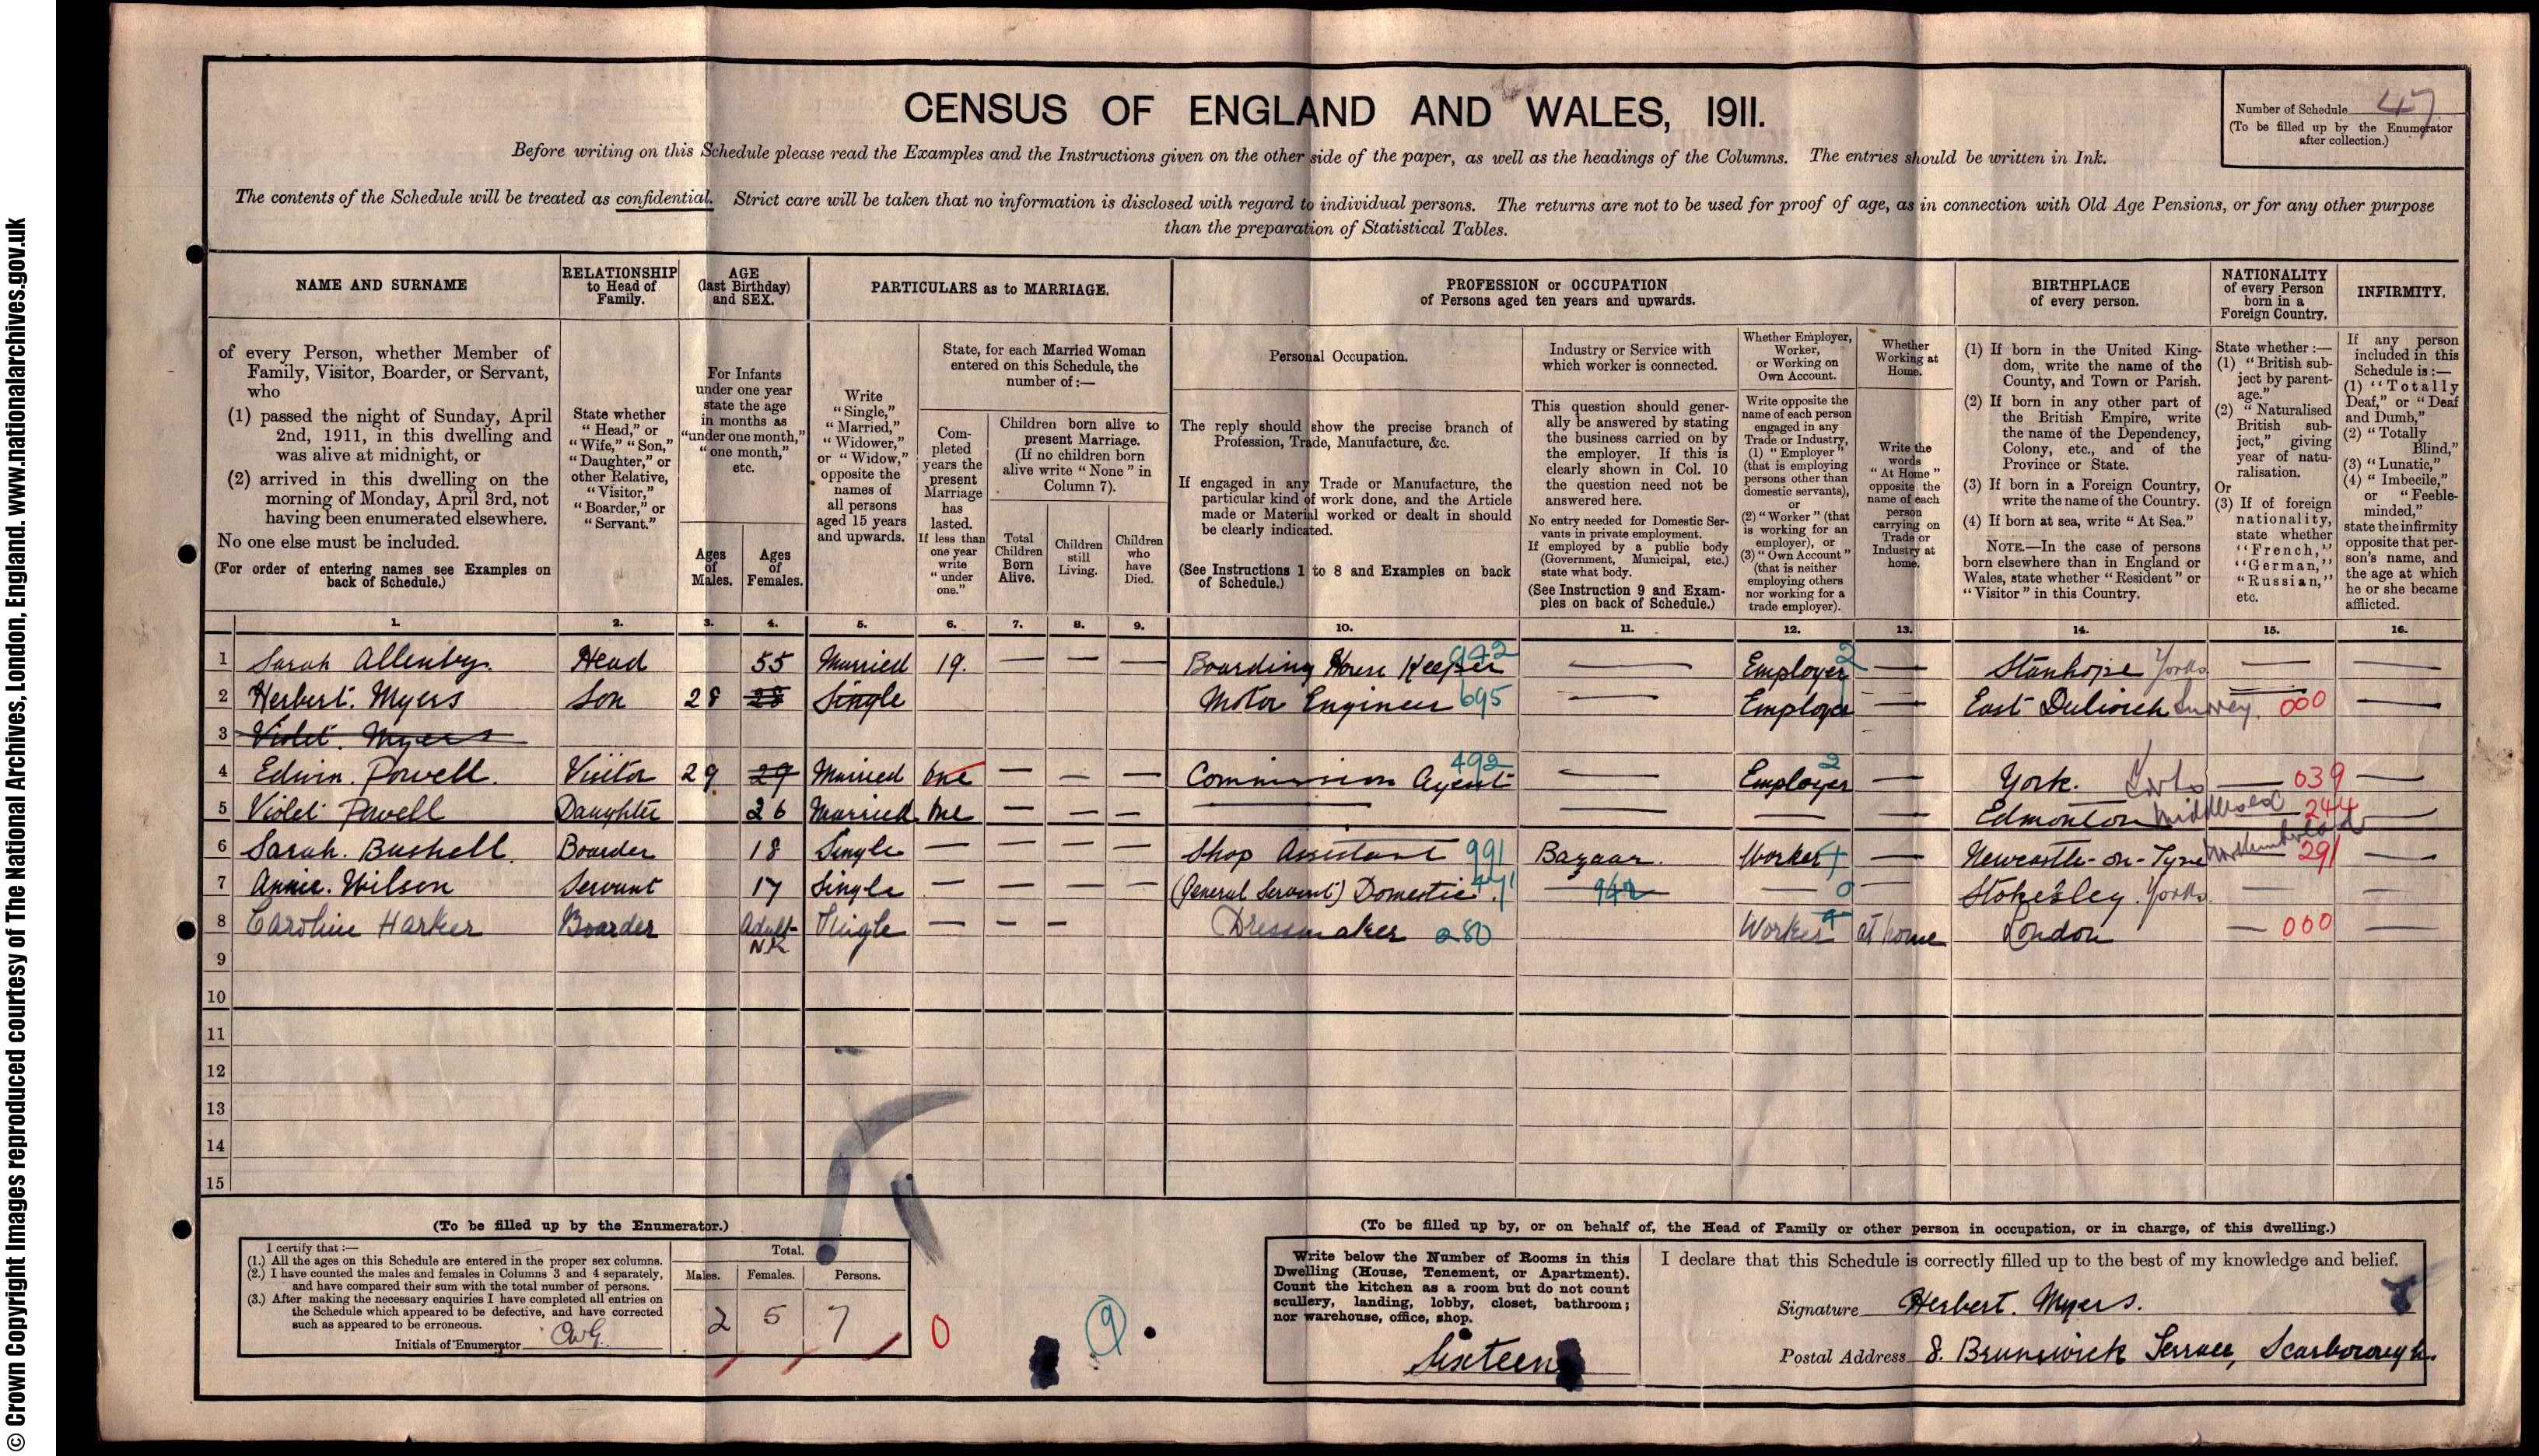 © Crown Copyright Images reproduced courtesy of The National Archives, London, England. www.nationalarchives.gov.uk
CENSUS OF ENGLAND AND WALES, 1911.
Number of Schedule 47
(To be filled up by the Enumerator after collection.)
Before writing on this Schedule please read the Examples and the Instructions given on the other side of the paper, as well as the headings of the Columns. The entries should be written in Ink.
The contents of the Schedule will be treated as confidential. Strict care will be taken that no information is disclosed with regard to individual persons. The returns are not to be used for proof of age, as in connection with Old Age Pensions, or for any other purpose
than the preparation of Statistical Tables.
NAME AND SURNAME
of every Person, whether Member of
Family, Visitor, Boarder, or Servant,
who
(1) passed the night of Sunday, April
2nd, 1911, in this dwelling and
was alive at midnight, or
(2) arrived in this dwelling on the
morning of Monday, April 3rd, not
having been enumerated elsewhere.
No one else must be included.
(For order of entering names see Examples on
back of Schedule.)
RELATIONSHIP
to Head of
Family.
State whether
"Head," or
"Wife," "Son,"
"Daughter," or
other Relative,
"Visitor,"
"Boarder," or
"Servant."
AGE
(last Birthday)
and SEX.
For Infants
under one year
state the age
in months as
"under one month,"
"one month,"
etc.
Ages
of
Males.
Ages
of
Females.
PARTICULARS as to MARRIAGE.
Write
"Single,"
"Married,"
"Widower,"
or "Widow,"
opposite the
names of
all persons
aged 15 years
and upwards.
State, for each Married Woman
entered on this Schedule, the
number of:—
Com-
pleted
years the
present
Marriage
has
lasted.
If less than
one year
write
"under
one."
Children born alive to
present Marriage.
(If no children born
alive write "None" in
Column 7).
Total
Children
Born
Alive.
Children
still
Living.
Children
who
have
Died.
PROFESSION or OCCUPATION
of Persons aged ten years and upwards.
Personal Occupation.
The reply should show the precise branch of
Profession, Trade, Manufacture, &c.
If engaged in any Trade or Manufacture, the
particular kind of work done, and the Article
made or Material worked or dealt in should
be clearly indicated.
(See Instructions 1 to 8 and Examples on back
of Schedule.)
Industry or Service with
which worker is connected.
This question should gener-
ally be answered by stating
the business carried on by
the employer. If this is
clearly shown in Col. 10
the question need not be
answered here.
No entry needed for Domestic Ser-
vants in private employment.
If employed by a public body
(Government, Municipal, etc.)
state what body.
(See Instruction 9 and Exam-
ples on back of Schedule.)
Whether Employer,
Worker,
or Working on
Own Account.
Write opposite the
name of each person
engaged in any
Trade or Industry,
(1) "Employer"
(that is employing
persons other than
domestic servants),
or
(2) "Worker" (that
is working for an
employer), or
(3) "Own Account"
(that is neither
employing others
nor working for a
trade employer).
Whether
Working at
Home.
Write the
words
"At Home"
opposite the
name of each
person
carrying on
Trade or
Industry at
home.
BIRTHPLACE
of every person.
(1) If born in the United King-
dom, write the name of the
County, and Town or Parish.
(2) If born in any other part of
the British Empire, write
the name of the Dependency,
Colony, etc., and of the
Province or State.
(3) If born in a Foreign Country,
write the name of the Country.
(4) If born at sea, write "At Sea."
NOTE.—In the case of persons
born elsewhere than in England or
Wales, state whether "Resident" or
"Visitor" in this Country.
NATIONALITY
of every Person
born in a
Foreign Country.
State whether :—
(1) "British sub-
ject by parent-
age."
(2) "Naturalised
British sub-
ject," giving
year of natu-
ralisation.
Or
(3) If of foreign
nationality,
state whether
"French,"
"German,"
"Russian,"
etc.
INFIRMITY.
If any person
included in this
Schedule is:—
(1) "Totally
Deaf," or "Deaf
and Dumb,"
(2) "Totally
Blind,"
(3) "Lunatic,"
(4) "Imbecile,"
or "Feeble-
minded,"
state the infirmity
opposite that per-
son's name, and
the age at which
he or she became
afflicted.
1. 2. 3. 4. 5. 6. 7. 8. 9. 10. 11. 12. 13. 14. 15. 16.
1 Sarah Allenby. Head 55 Married 19. — — — Boarding House Keeper 942 — Employer 2 — Stanhope Yorks — —
2 Herbert. Myers Son 28 28 Single Motor Engineer 695 — Employer — East Dulwich Surrey. 000 —
3 Violet. Myers
4 Edwin. Powell. Visitor 29 29 Married One — — — Commission Agent 492 — Employer 2 — York. — 039 —
5 Violet Powell Daughter 26 Married One — — — — — — — Edmonton Middlesex 244 —
6 Sarah. Bushell. Boarder 18 Single — — — — Shop Assistant 991 Bazaar. Worker — Newcastle-on-Tyne Northumberland 291 —
7 Annie. Wilson Servant 17 Single — — — — (General Servant) Domestic 942 — 0 — Stokesley. Yorks. — —
8 Caroline Harker Boarder Adult N.K. Single — — — Dressmaker 280 Worker at home London — 000 —
9
10
11
12
13
14
15
(To be filled up by the Enumerator.)
I certify that :—
(1.) All the ages on this Schedule are entered in the proper sex columns.
(2.) I have counted the males and females in Columns 3 and 4 separately,
and have compared their sum with the total number of persons.
(3.) After making the necessary enquiries I have completed all entries on
the Schedule which appeared to be defective, and have corrected
such as appeared to be erroneous.
Initials of Enumerator CWG.
Total.
Males. Females. Persons.
2 5 7
0
9
(To be filled up by, or on behalf of, the Head of Family or other person in occupation, or in charge, of this dwelling.)
Write below the Number of Rooms in this
Dwelling (House, Tenement, or Apartment).
Count the kitchen as a room but do not count
scullery, landing, lobby, closet, bathroom;
nor warehouse, office, shop.
Sixteen
I declare that this Schedule is correctly filled up to the best of my knowledge and belief.
Signature Herbert. Myers.
Postal Address 8. Brunswick Terrace, Scarborough.